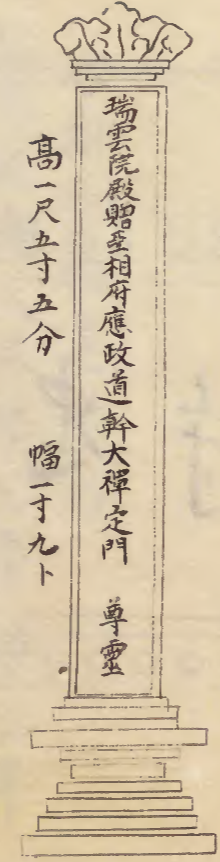 瑞雲院殿贈亞相府應政道幹大禪定門 尊靈
高一尺五寸五分 幅一寸九卜